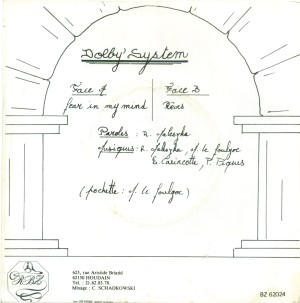 Dolby' System
Face A
Face B
fear in my mind
Rêves
Paroles : R. Maleszka
Musiques : R. Maleszka, M. le foulgoc
(pochette : M. le foulgoc)
RBZ
625, rue Aristide Briand
62150 HOUDAIN
Tél. : 21.62.03.78.
Mixage : C. SCHADKOWSKI
BZ 62024